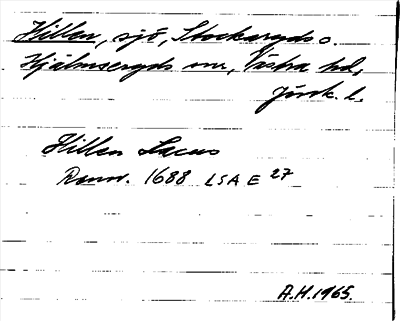 Hillen, sjö, Stockaryds o.
Hjälmseryds snr, Västra hd,
Jönk. l.
Hillen Lacus
Rann. 1688 LSA E 27
A.H. 1965.